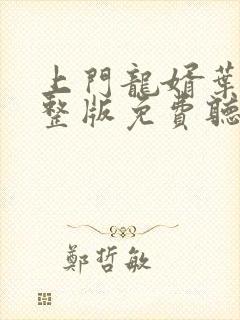 上門龍婿葉
整版免費聽
鄭哲敏